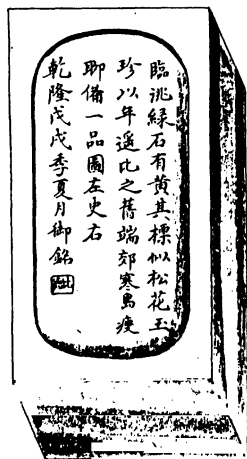 臨洮緑石有黄其標似松花玉
珍以年遥比之舊端郊寒島瘦
聊備一品圖左史右
乾隆戊戌季夏月御銘